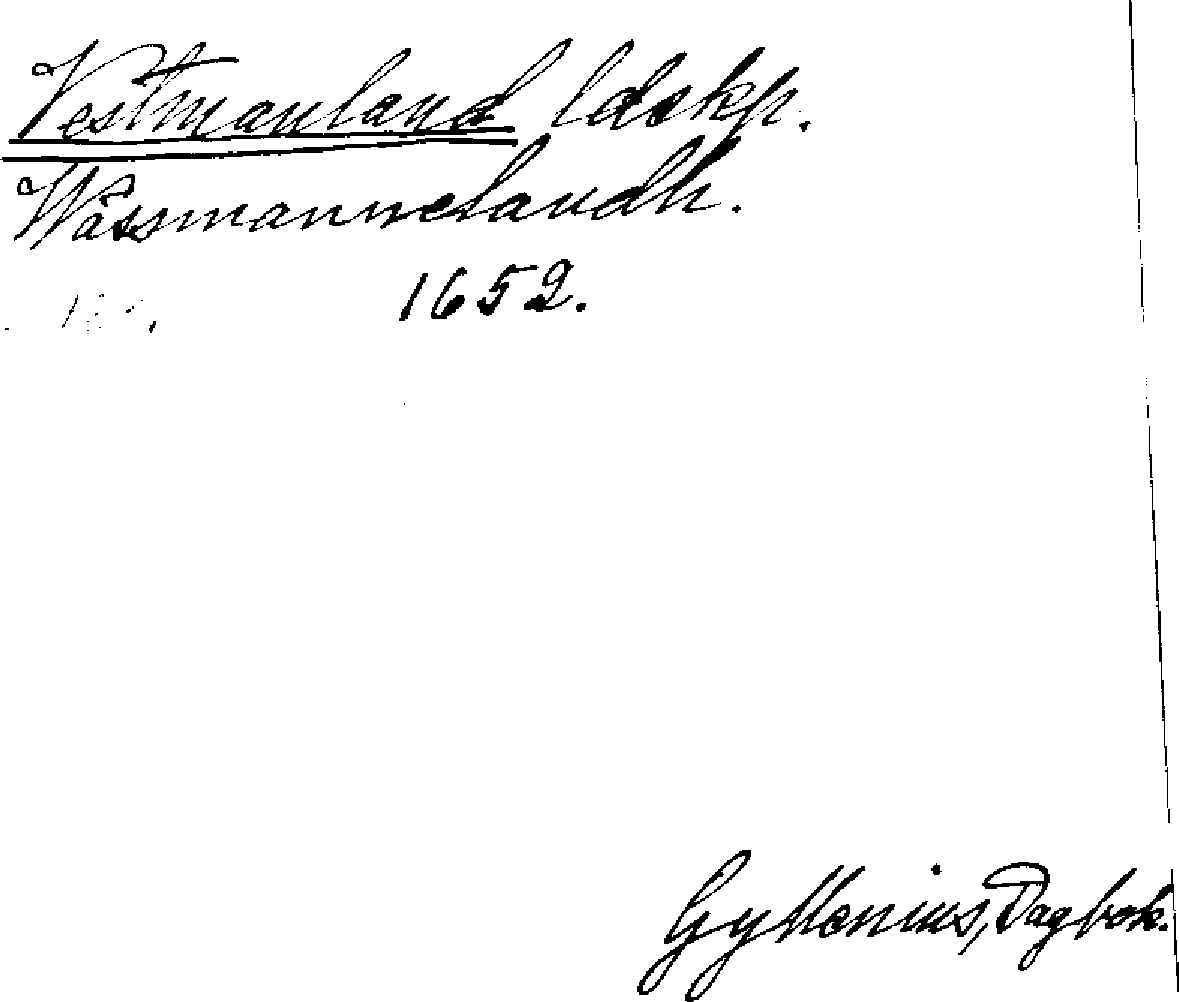 Vestmanland ldskp.
Wässmannelandh.
1652.
Gyllenius, Dagbok.